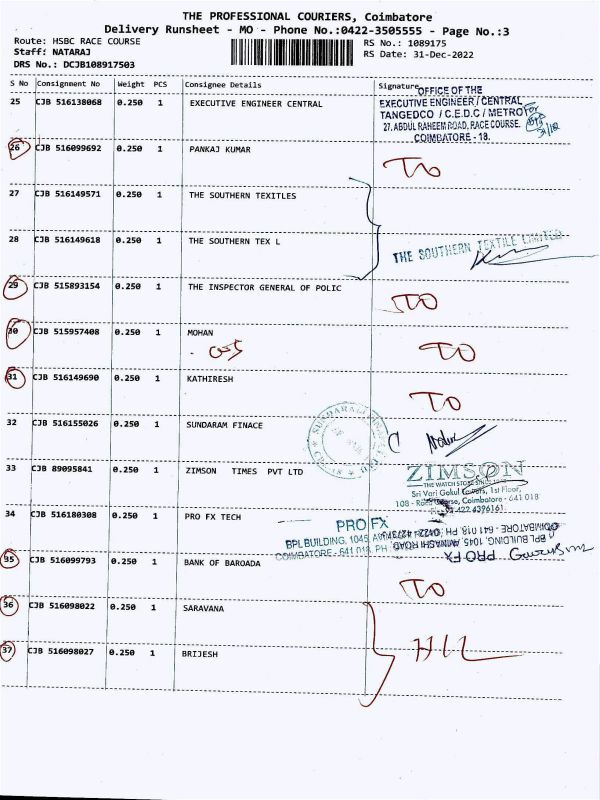 THE PROFESSIONAL COURIERS, Coimbatore
Delivery Runsheet - MO - Phone No.:0422-3505555 - Page No.:3
Route: HSBC RACE COURSE RS No.: 1089175
Staff: NATARAJ RS Date: 31-Dec-2022
DRS No.: DCJB108917503
S No Consignment No Weight PCS Consignee Details Signature
25 CJB 516138068 0.250 1 EXECUTIVE ENGINEER CENTRAL
OFFICE OF THE
EXECUTIVE ENGINEER / CENTRAL
TANGEDCO / C.E.D.C / METRO
27, ABDUL RAHEEM ROAD, RACE COURSE.
COIMBATORE - 18.
For
31/12
26 CJB 516099692 0.250 1 PANKAJ KUMAR TO
27 CJB 516149571 0.250 1 THE SOUTHERN TEXITLES
28 CJB 516149618 0.250 1 THE SOUTHERN TEX L
THE SOUTHERN TEXTILE LIMITED
29 CJB 515893154 0.250 1 THE INSPECTOR GENERAL OF POLIC TO
30 CJB 515957408 0.250 1 MOHAN TO
31 CJB 516149690 0.250 1 KATHIRESH TO
32 CJB 516155026 0.250 1 SUNDARAM FINACE
33 CJB 89095841 0.250 1 ZIMSON TIMES PVT LTD
ZIMSON
THE WATCH STORE SINCE
Sri Vari Gokul Towers, 1st Floor,
108 - Race Course, Coimbatore - 641 018
422 4396161
34 CJB 516180308 0.250 1 PRO FX TECH
PRO FX
BPL BUILDING, 1045, AVINASHI ROAD,
COIMBATORE - 641 018. PH :
PRO FX
BPL BUILDING, 1045, AVINASHI ROAD,
COIMBATORE - 641 018. PH : 0422 -
35 CJB 516099793 0.250 1 BANK OF BARODA TO
36 CJB 516098022 0.250 1 SARAVANA
37 CJB 516098027 0.250 1 BRIJESH